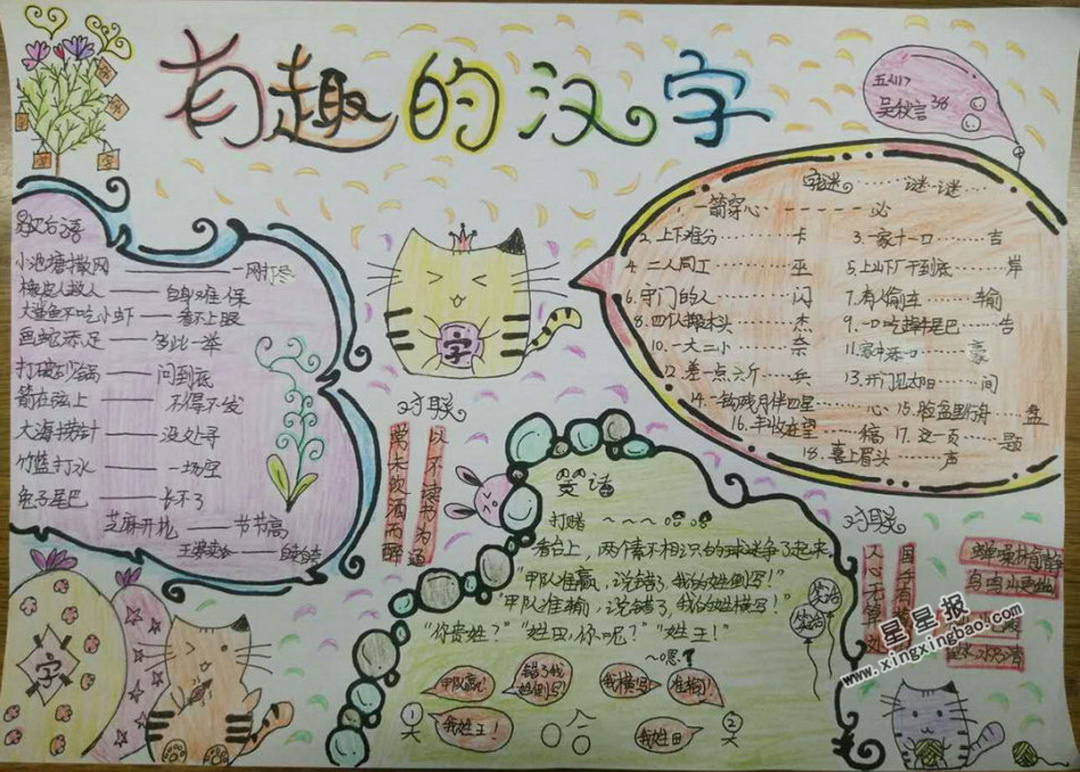 有趣的汉字
歇后语
小池塘撒网————一网打尽
橡皮人救人————自身难保
大鲨鱼不吃小虾——看不上眼
画蛇添足——多此一举
打破砂锅——问到底
箭在弦上——不得不发
大海捞针——没处寻
竹篮打水——一场空
兔子尾巴——长不了
芝麻开花——节节高
王婆卖瓜——自卖自夸
字
字
对联
以不读书为通
常未饮酒而醉
字谜……谜一谜…
1.一箭穿心------必
2.上下难分………卡 3.一家十一口……吉
4.二人同工………巫 5.上山下厂干到底……岸
6.守门的人………闪 7.有人偷车……输
8.四仆撑木头……杰 9.一口吃掉牛尾巴…告
10.一大二小……奈 11.家中添一口……豪
12.差一点六斤…兵 13.开门见太阳……间
14.一钩残月伴四星……心 15.脸盆里行舟……盘
16.丰收在望……稿 17.这一页……题
18.喜上眉头……声
笑话
打赌~~~哈哈
看台上，两个素不相识的球迷争了起来
"甲队准赢，说错了，我的姓倒写！"
"甲队准输，说错了，我的姓横写！"
"你贵姓？""姓田，你呢？""姓王！"
~嗯？
甲队赢！
错了我姓倒写！
我横写
准输！
我姓王！
哈
我姓田
1
2
笑话
笑话
对联
国手有
人心无算处
蝉噪林
鸟鸣山更幽
星星报
www.xingxingbao.com